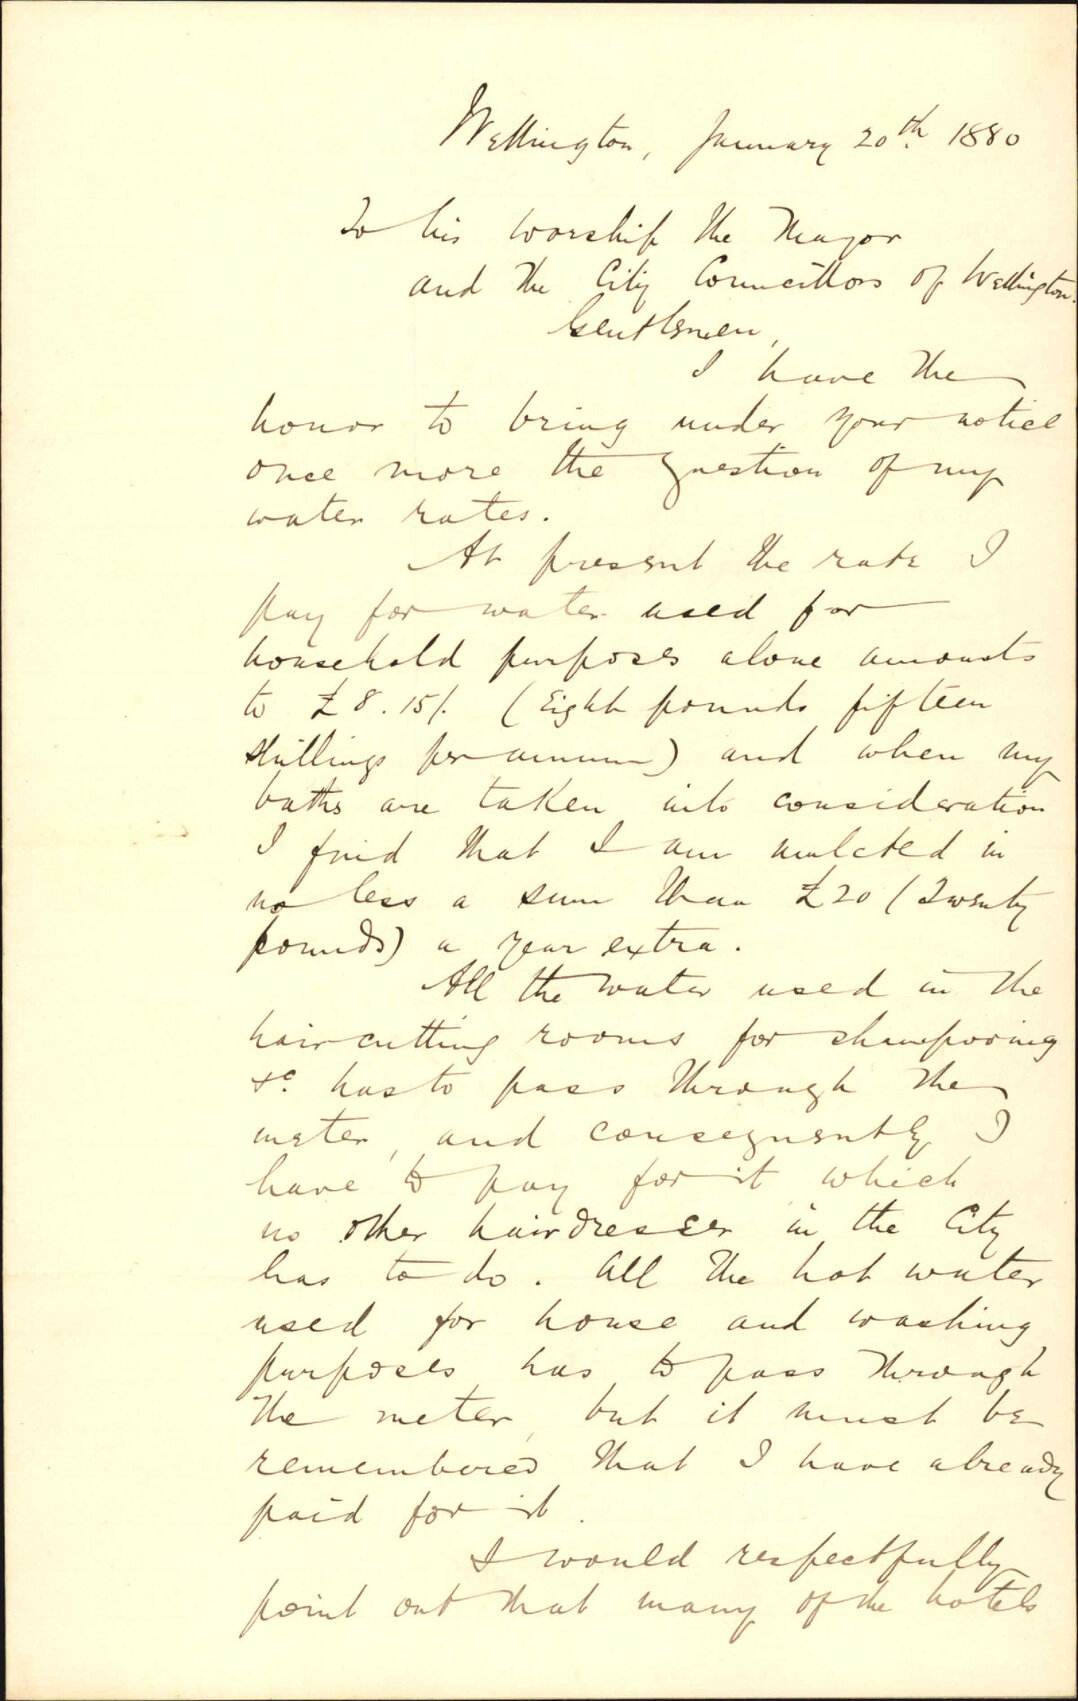 Wellington, January 20th. 1880
To his worship the Mayor
and the City Councillors of Wellington.
Gentlemen,
I have the
honor to bring under your notice
once more the question of my
water rates.
At present the rate I
pay for water used for
household purposes alone amounts
to £8.15/. (Eight pounds fifteen
shillings per annum) and when my
baths are taken into consideration
I find that I am mulcted in
no less a sum than £20 (Twenty
pounds) a year extra.
All the water used in the
hair cutting rooms for shampooing
&c. has to pass through the
meter, and consequently I
have to pay for it which
no other hairdresser in the City
has to do. All the hot water
used for house and washing
purposes has to pass through
the meter, but it must be
remembered that I have already
paid for it.
I would respectfully
point out that many of the hotels